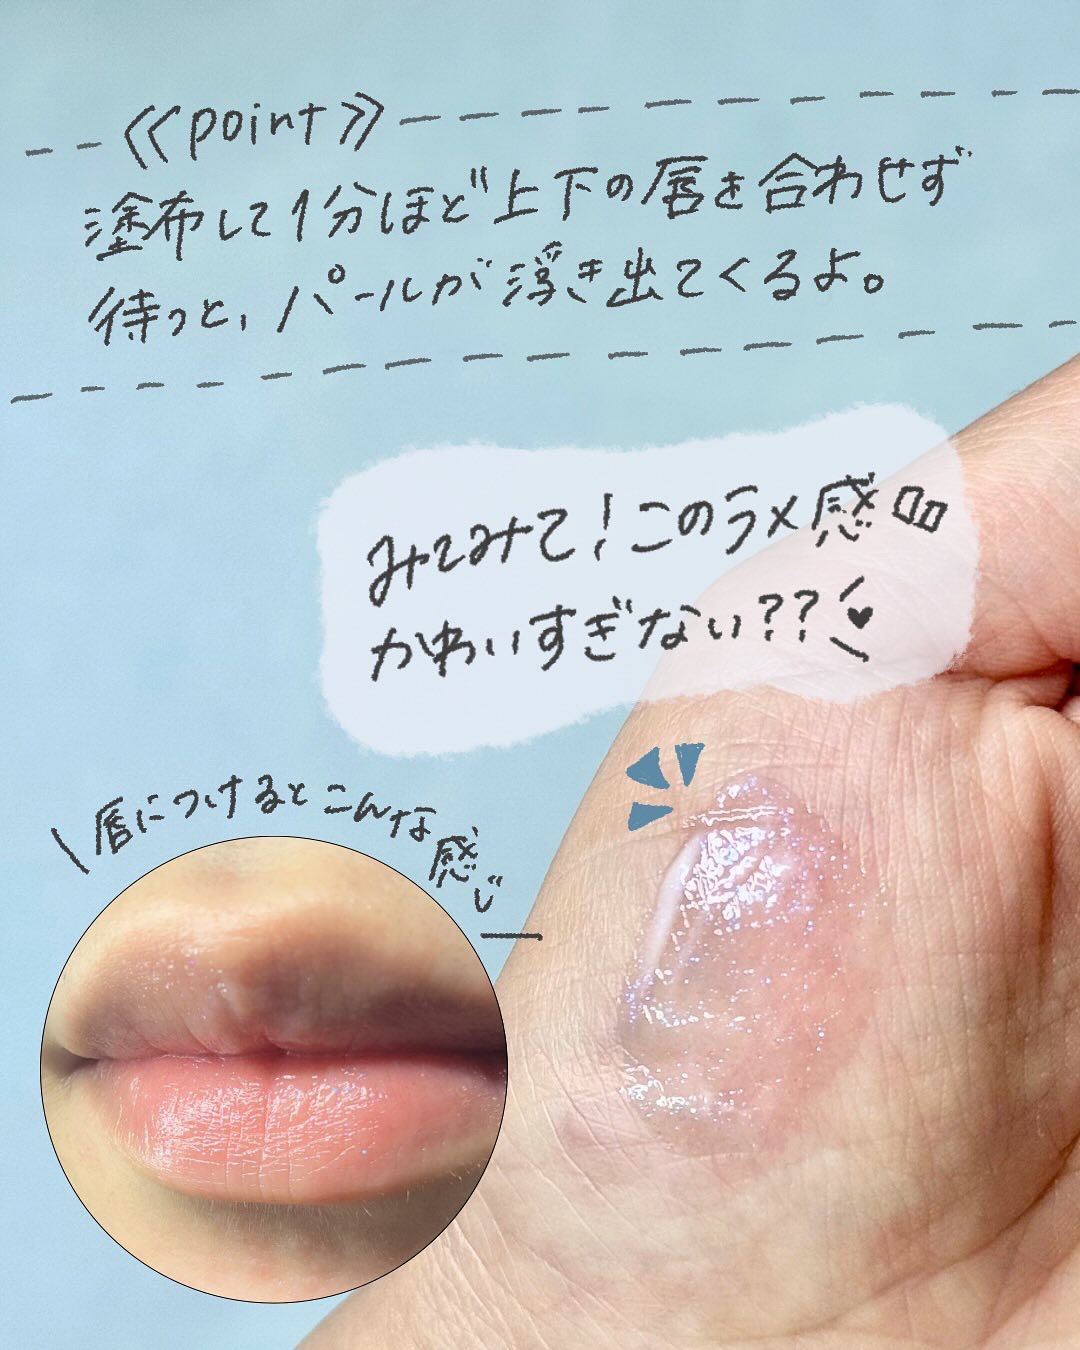 《point》
塗布して1分ほど上下の唇を合わせず
待つと、パールが浮き出てくるよ。
みてみて!このラメ感
かわいすぎない??
唇につけるとこんな感じ